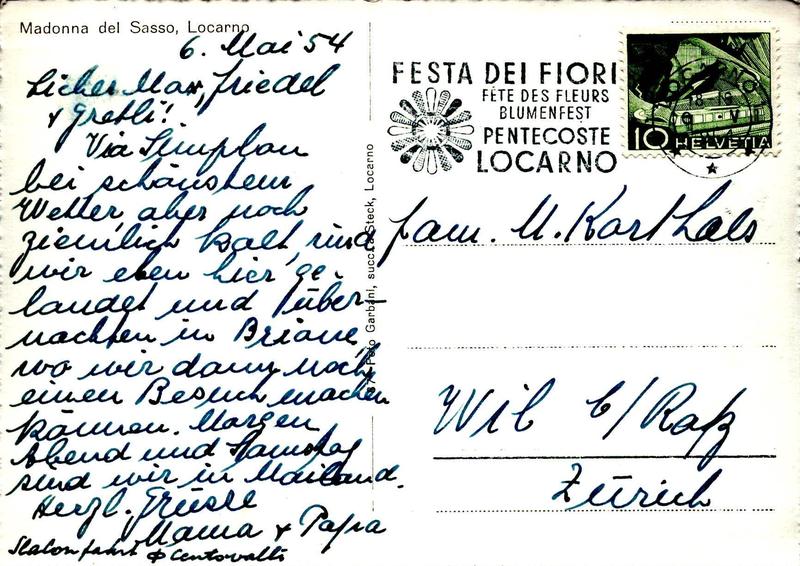 Madonna del Sasso, Locarno
6. Mai 54
Lieber Max, Friedel
+ Gretli!
Via Simplon
bei schönstem
Wetter aber noch
ziemlich kalt, sind
wir eben hier ge-
landet und über-
nachten in Brione
wo wir dann noch
einen Besuch machen
können. Morgen
Abend und Samstag
sind wir in Mailand.
Herzl. Grüsse
Mama + Papa
Centovalli
Foto Garbani, succ. a Steck, Locarno
FESTA DEI FIORI
FÊTE DES FLEURS
BLUMENFEST
PENTECOSTE
LOCARNO
LOCARNO
10 HELVETIA
Fam. M. Karthals
Wil b/Rafz
Zürich